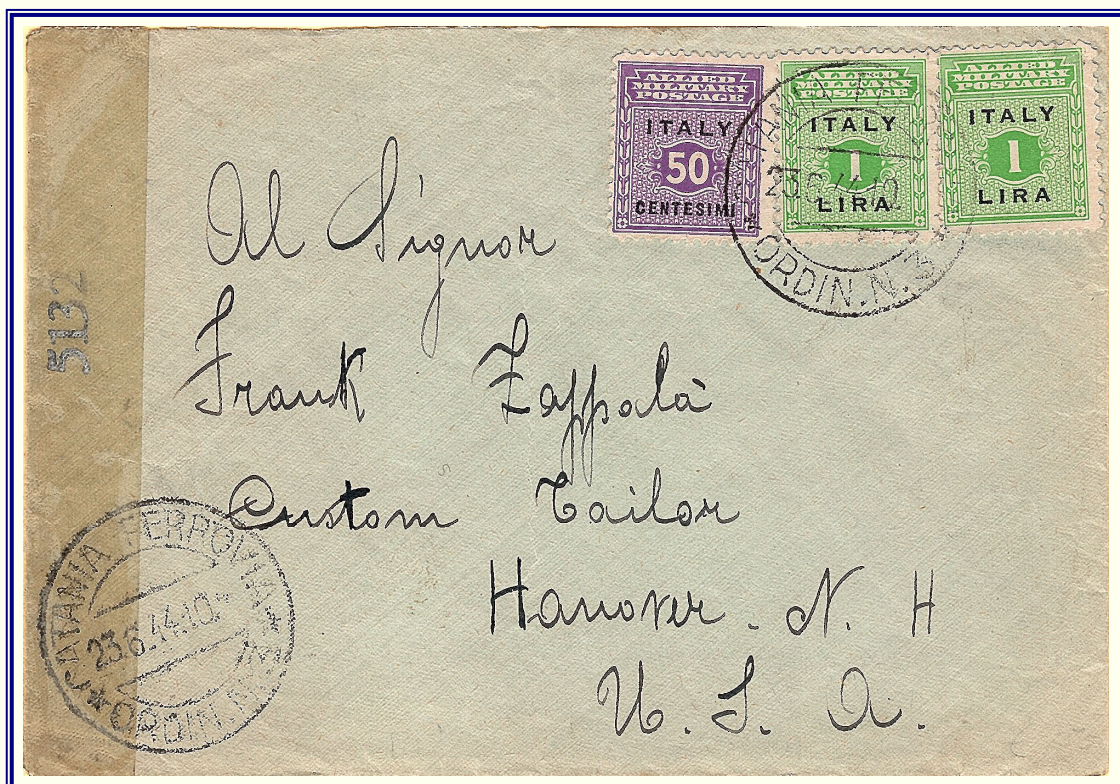 ALLIED
MILITARY
POSTAGE
ITALY
50
CENTESIMI
ALLIED
MILITARY
POSTAGE
ITALY
1
LIRA
ALLIED
MILITARY
POSTAGE
ITALY
1
LIRA
23.6.44.10
ORDIN.N.3
Al Signor
Frank Zappalà
Custom Tailor
Hanover. N. H
U. S. A.
5132
CATANIA FERROVIA
23.6.44.10
ORDIN.